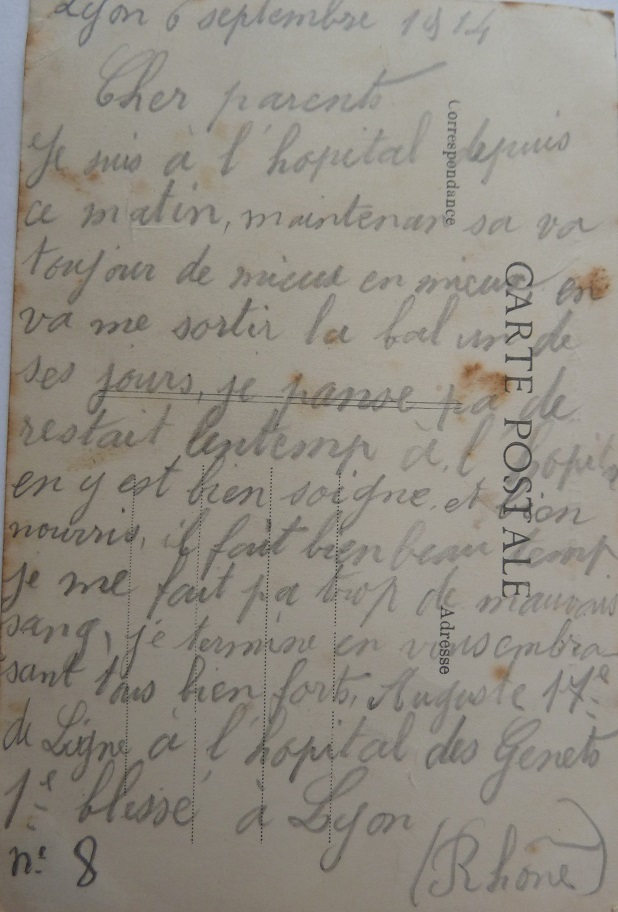 Lyon 6 septembre 1914
Cher parents
Je suis à l'hopital depuis
ce matin, maintenan sa va
toujour de mieux en mieux en
va me sortir la bal un de
ses jours, je panse pa de
restait lentemp à l'hopital
en y est bien soigne, et bien
nourris, il fait bien beau temp
je me fait pa trop de mauvais
sang, je termine en vous embra
sant tous bien forts, Auguste 17e
de Ligne à l'hopital des Genets
1e blesse à Lyon
n: 8 (Rhone)
Correspondance
CARTE POSTALE
Adresse